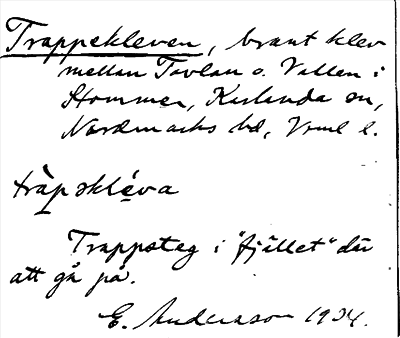 Trappekleven, brant klev
mellan Tavlan o. Vallen i
Stommen, Karlanda sn,
Nordmarks hd, Vrml l.
tràpəkléva
Trappsteg i "fjället" där
att gå på.
E. Andersson 1924.